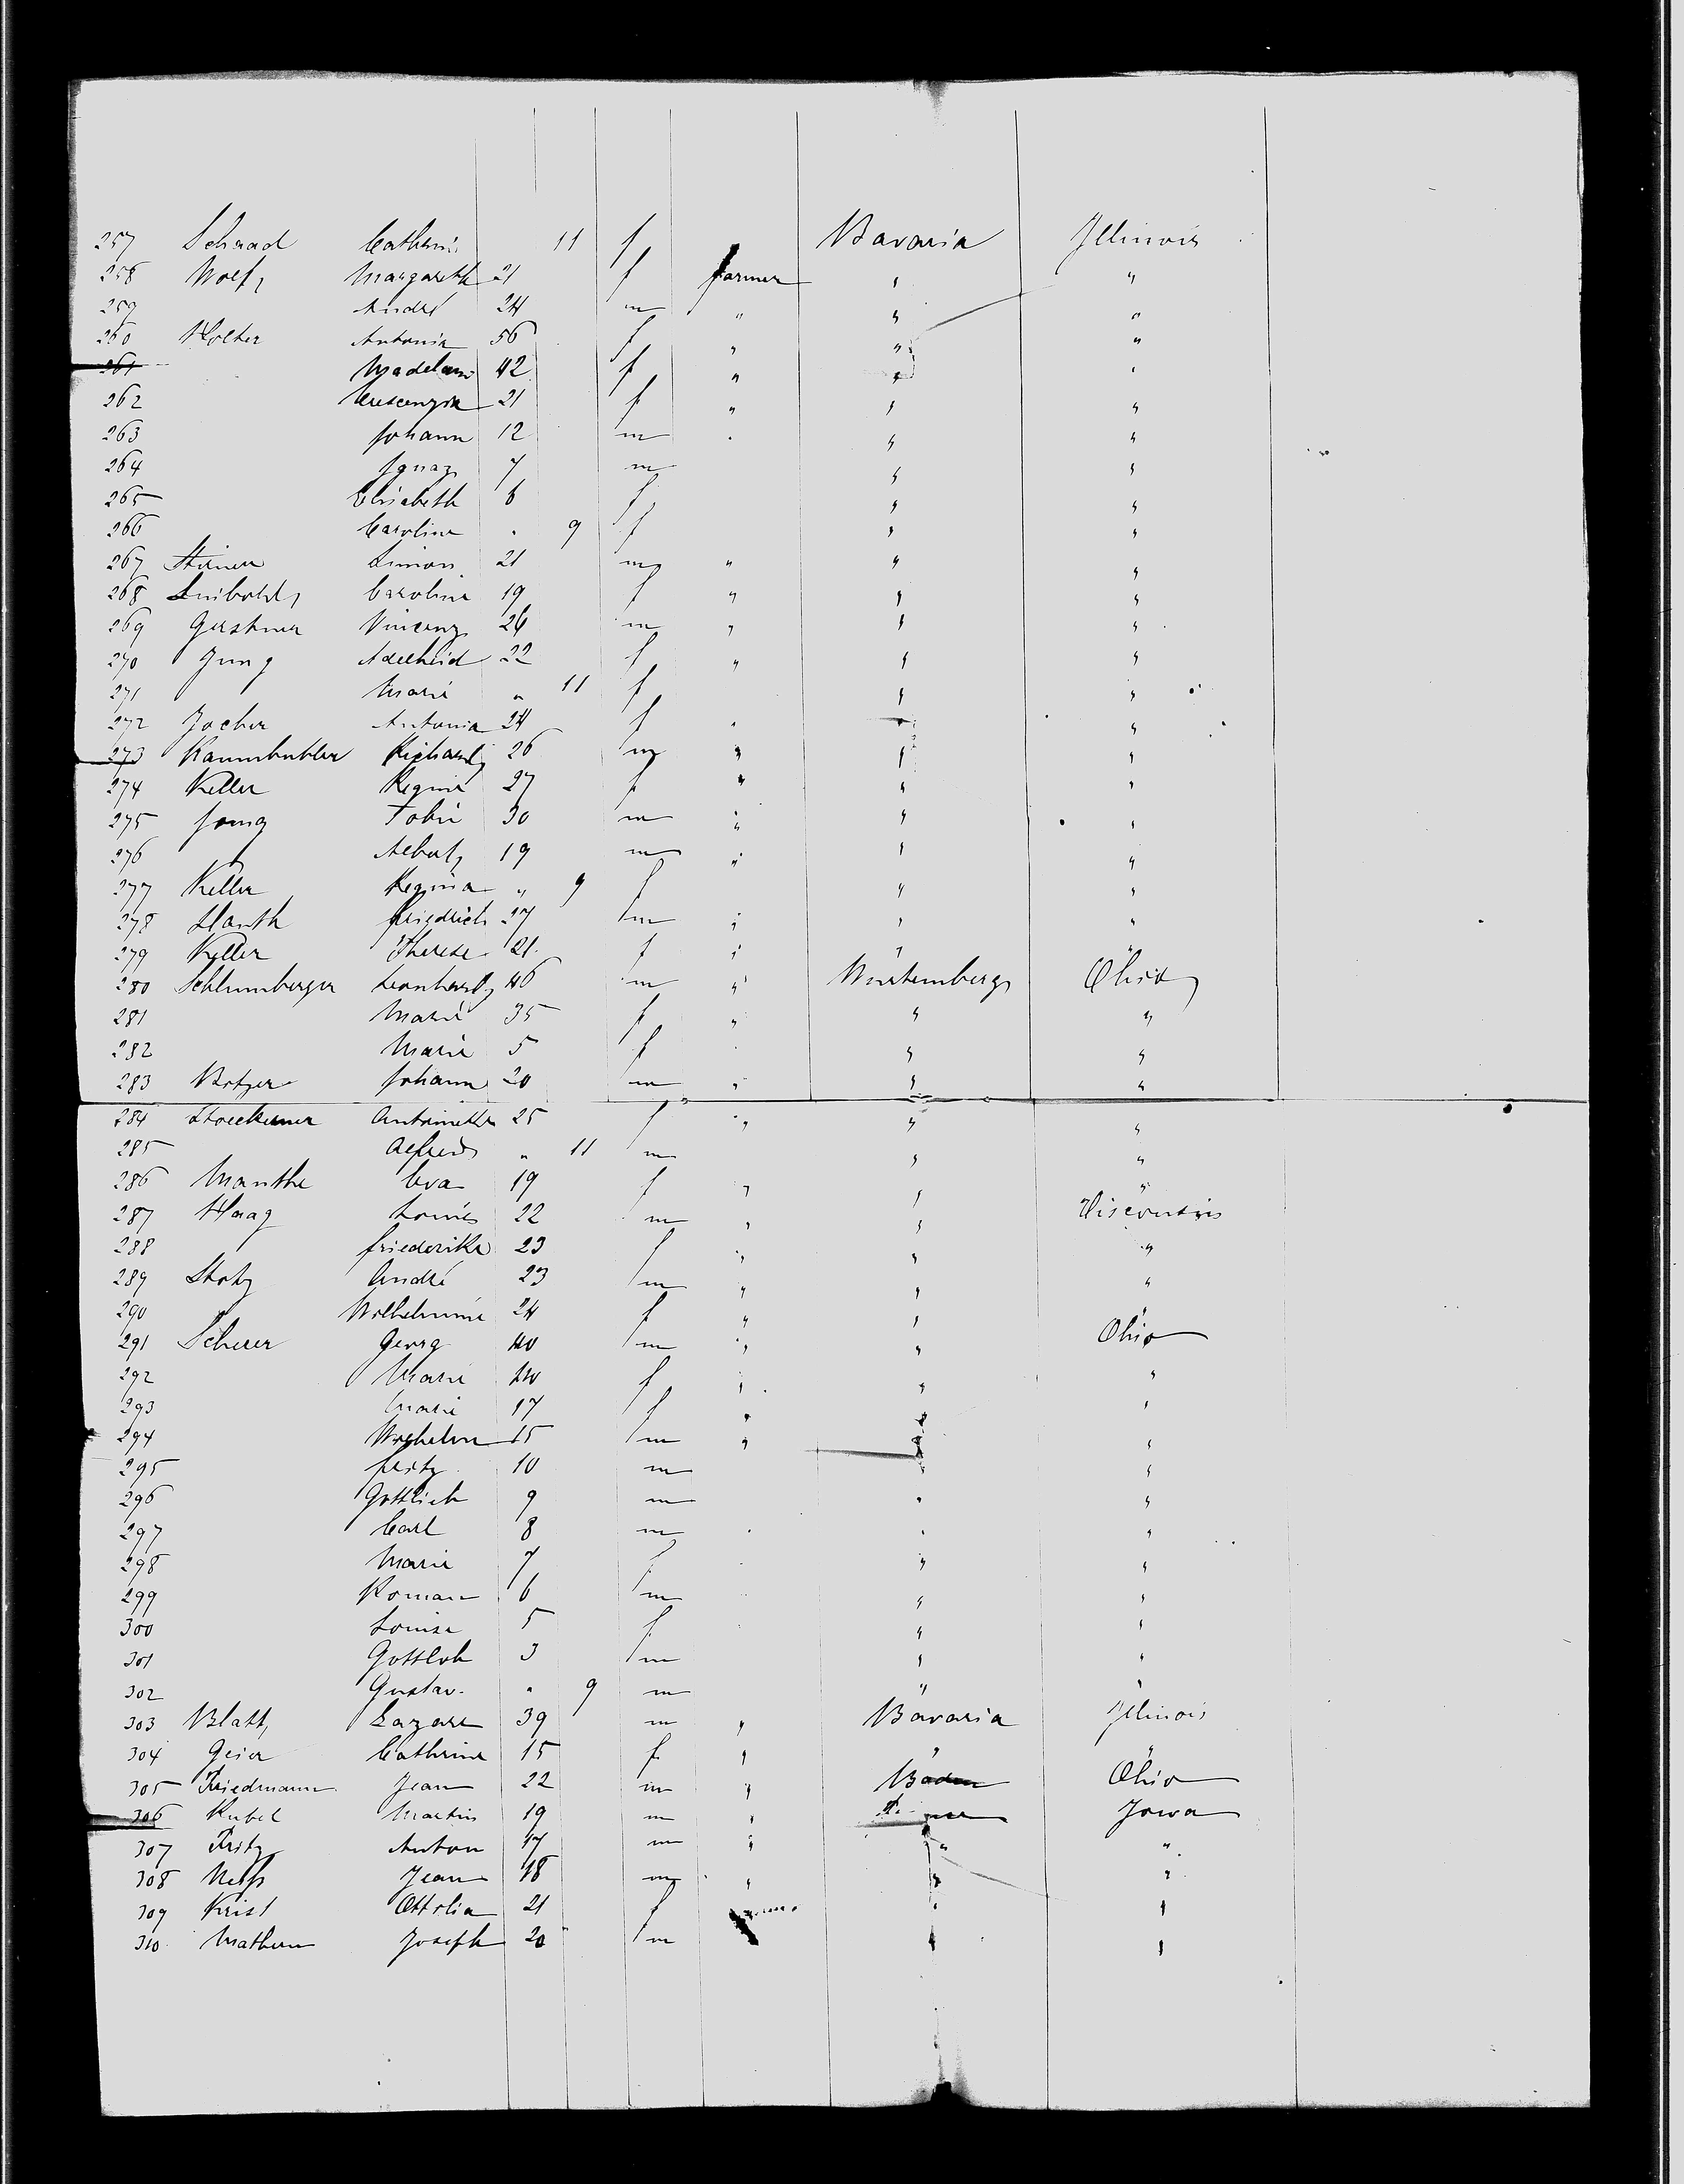 257 Schaad Catharin 11 f Bavaria Illinois
258 Wolf Margareth 21 f farmer " "
259 André 24 m " " "
260 Holter Antonia 56 f " " "
261 Madelaine 42 f " " "
262 Crescenzia 21 f " " "
263 Johann 12 m " " "
264 Ignaz 7 m " "
265 Elisabeth 6 f " "
266 Caroline " 9 f " "
267 Simon 21 m " " "
268 Leibold Caroline 19 f " " "
269 Gerstner Vincenz 26 m " " "
270 Jung Adelheid 22 f " " "
271 Marie " 11 f " "
272 Jocher Antonia 24 f " " "
273 26 m " " "
274 Keller Regine 27 f " " "
275 Jung Tobie 30 m " " "
276 Albert 19 m " " "
277 Keller Regina " 9 f " "
278 Friedrich 27 m " " "
279 Keller Therese 21 f " " "
280 Schlumberger Leonhard 46 m " Wurtemberg Ohio
281 Marie 35 f " " "
282 Marie 5 f " "
283 Botzer Johann 20 m " " "
284 Antoinette 25 f " " "
285 Alfred " 11 m " "
286 Manthe Eva 19 f " " "
287 Haag Louis 22 m " " Visconsin
288 Friederike 23 f " " "
289 Stotz André 23 m " " "
290 Wilhelmine 24 f " " "
291 Scherer Georg 40 m " " Ohio
292 Marie 40 f " " "
293 Marie 17 f " " "
294 Wilhelm 15 m " " "
295 Fritz 10 m " "
296 Gottlieb 9 m " "
297 Carl 8 m " "
298 Marie 7 f " "
299 Roman 6 m " "
300 Louise 5 f " "
301 Gottlob 3 m " "
302 Gustav " 9 m " "
303 Blatt Lazare 39 m " Bavaria Illinois
304 Geier Cathrine 15 f " " "
305 Friedmann Jean 22 m " Baden Ohio
306 Kubel Martin 19 m " Iowa
307 Fritz Anton 17 m " " "
308 Jean 18 m " " "
309 Krist Ottilia 21 f " "
310 Mathern Joseph 20 m " "